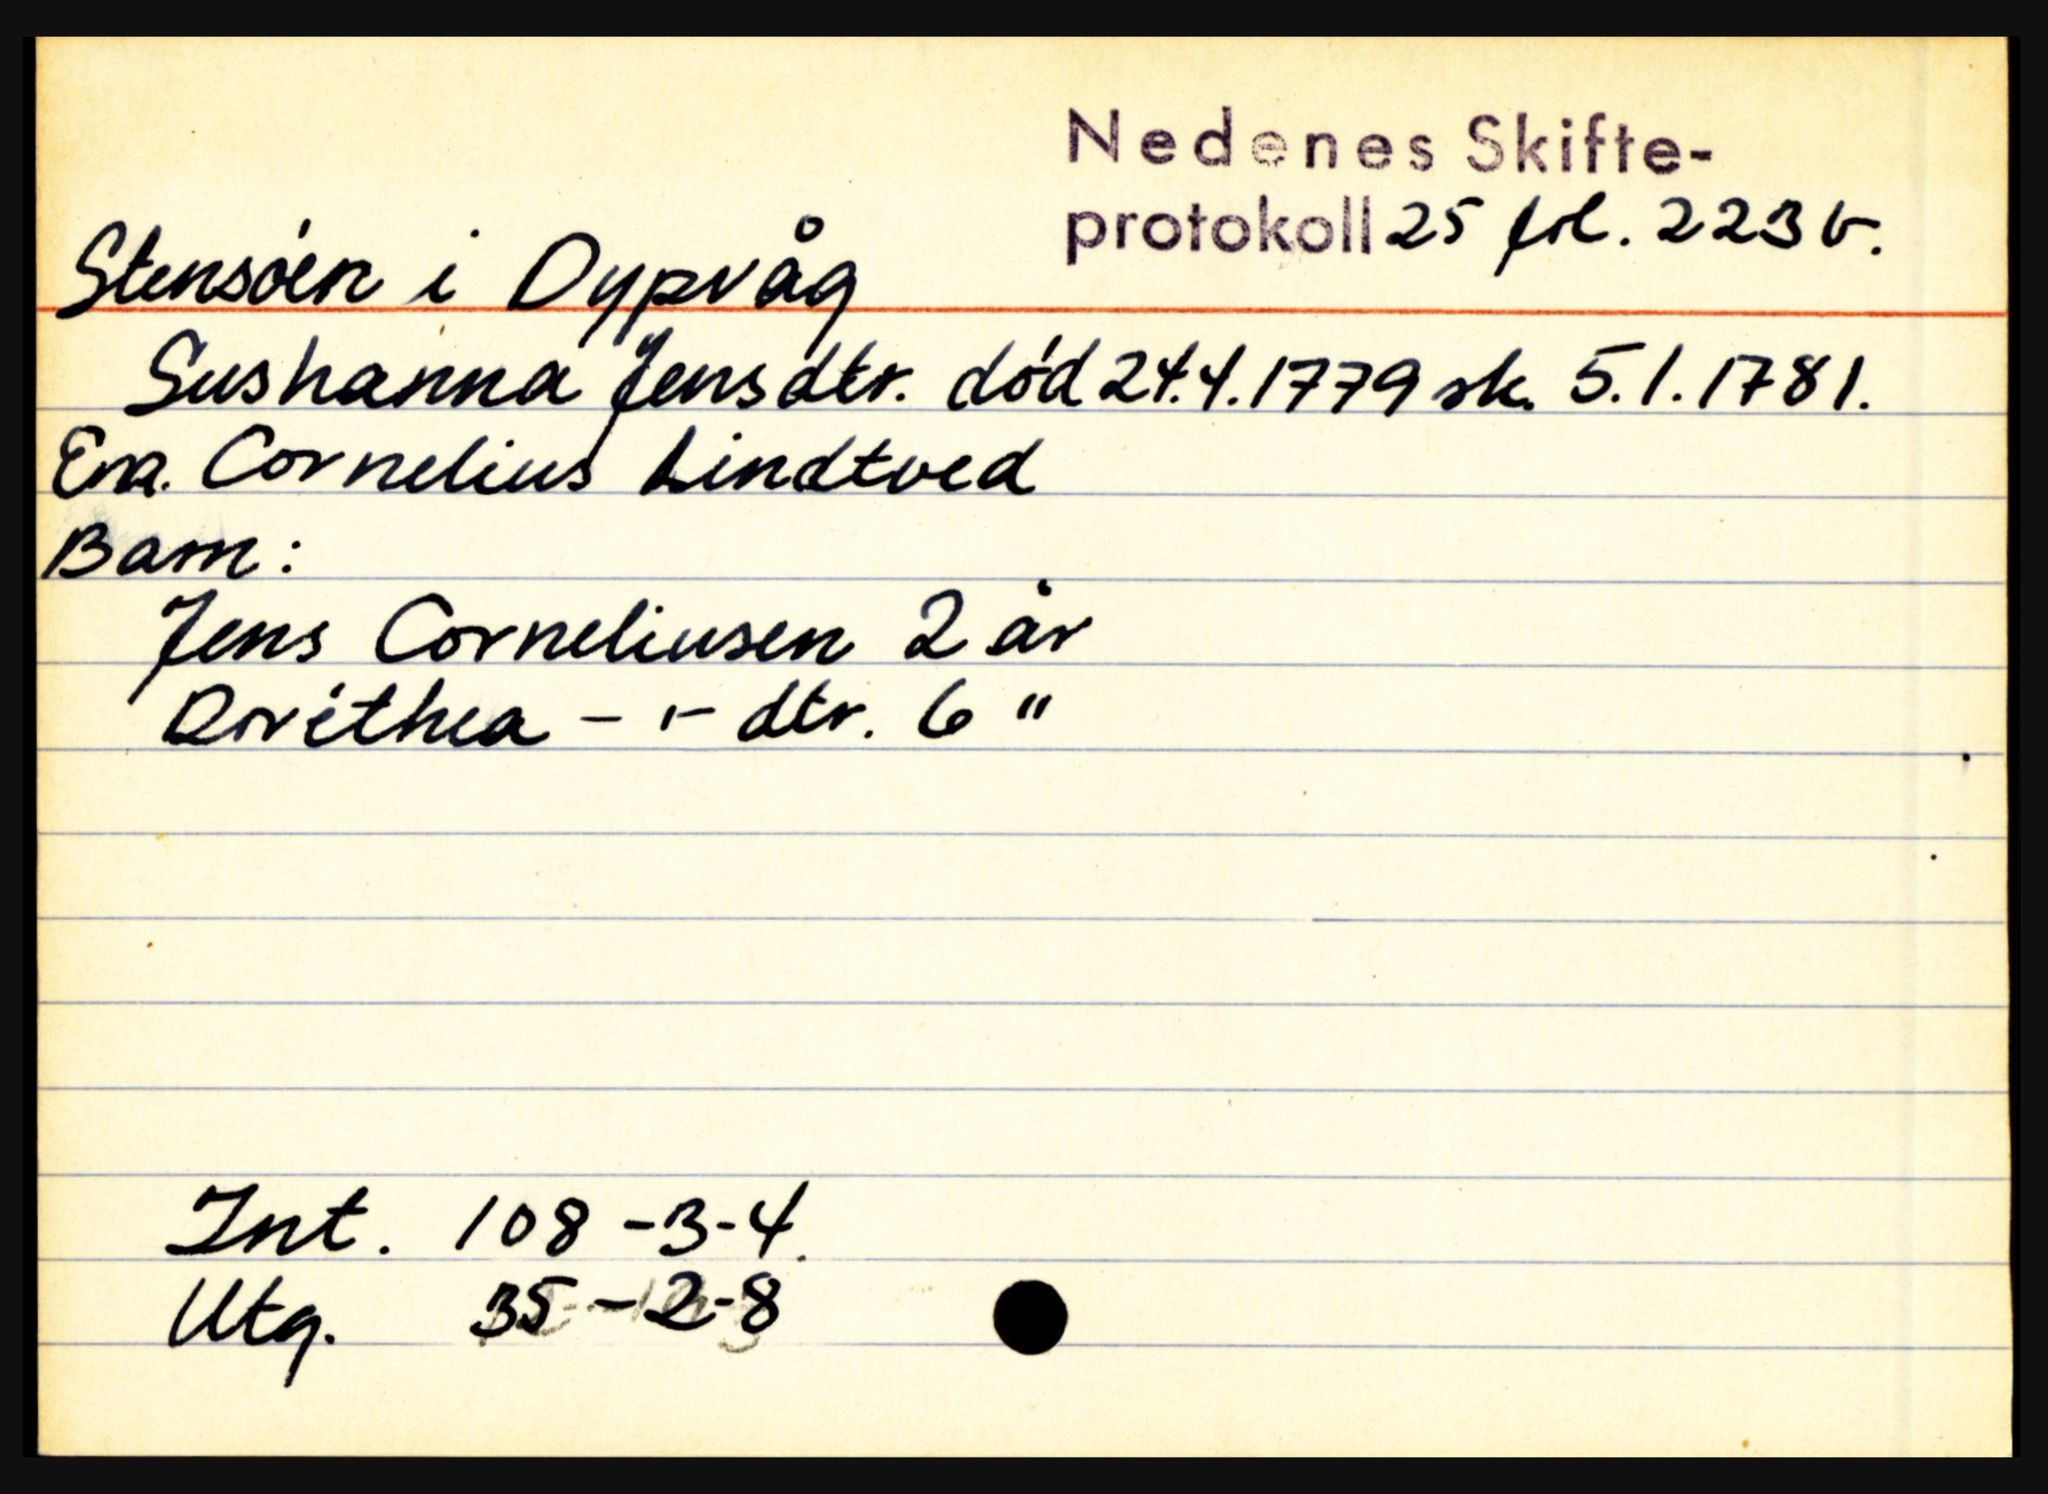 Nedenes Skifte-
protokoll 25 fol. 223 b.
Stensøen i Dypvåg
Sushanna Jensdtr. død 24.4.1779 sk. 5.1.1781.
Enk. Cornelius Lindtved
Barn:
Jens Corneliusen 2 år
Dorethea - " - dtr. 6 "
Int. 108-3-4.
Utg. 35-2-8